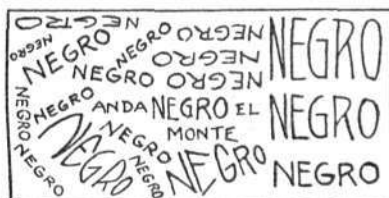 NEGRO
NEGRO
NEGRO
NEGRO
NEGRO
NEGRO
NEGRO
NEGRO
NEGRO
NEGRO
NEGRO
NEGRO
ANDA NEGRO EL
MONTE
NEGRO
NEGRO
NEGRO
NEGRO
NEGRO
NEGRO
NEGRO